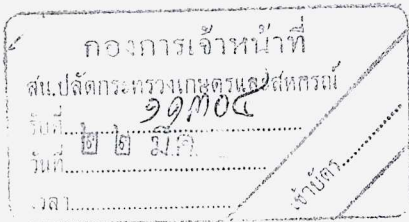 กองการเจ้าหน้าที่
สน.ปลัดกระทรวงเกษตรและสหกรณ์
รับที่
วันที่ ๒๒ มี.ค.
เวลา
เข้าบัตร